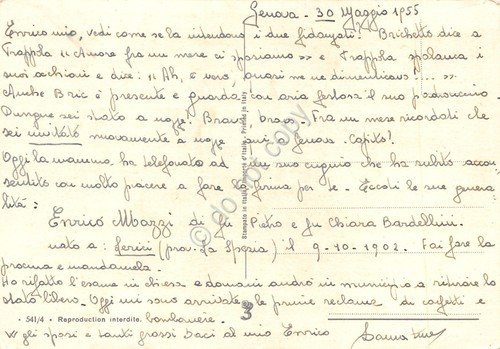 Genova - 30 Maggio 1955
Enrico mio, vedi come se la intendono i due fidanzati! Brichetto dice a
Trappla "Amore fra un mese ci sposiamo" e Trappla spalanca i
suoi occhioni e dice: "Ah, è vero, quasi me ne dimenticavo! ..."
Anche Bric è presente e guarda con aria festosa il suo padroncino.
Dunque sei stato a nozze! Bravo, bravo. Fra un mese ricordati che
sei invitato nuovamente a nozze qui a Genova. Capito!
Oggi la mamma ha telefonato ad un suo cugino che ha subito accon
sentito con molto piacere a fare la firma per te. Eccoti le sue genera
lità:
Enrico Mazzi di fu Pietro e fu Chiara Bardellini.
nato a: Lerici (prov. La Spezia) il 9-10-1902. Fai fare la
procura e mandamela.
Ho rifatto l'esame in chiesa e domani andrò in municipio a ritirare lo
stato libero. Oggi mi sono arrivate le prime reclame di confetti e
541/4 • Reproduction interdite. bomboniere.
W gli sposi e tanti grossi baci al mio Enrico
3
Stampato in Italia - Printed in Italy
do not copy